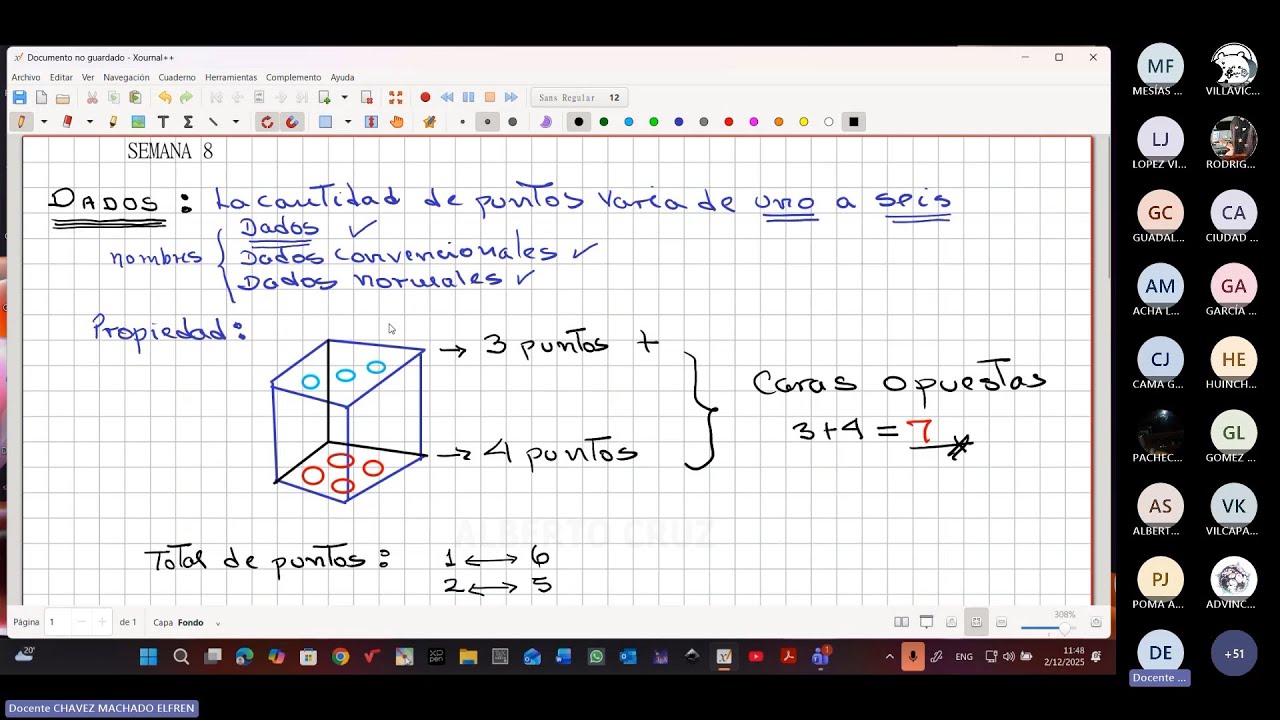 Documento no guardado - Xournal++
Archivo Editar Ver Navegación Cuaderno Herramientas Complemento Ayuda
Sans Regular 12
SEMANA 8
DADOS : La cantidad de puntos varia de uno a seis
nombres
Dados
Dados convencionales
Dados normales
Propiedad:
3 puntos +
4 puntos
Caras opuestas
3+4 = 7
ALBERTO CRUZ
Total de puntos : 1 ↔ 6
2 ↔ 5
Página 1 de 1 Capa Fondo
308%
20°
ENG
11:48
2/12/2025
MF
MESÍAS ...
VILLAVIC...
LJ
LOPEZ VI...
RODRIG...
GC
GUADAL...
CA
CIUDAD ...
AM
ACHA L...
GA
GARCÍA ...
CJ
CAMA G...
HE
HUINCH...
PACHEC...
GL
GOMEZ ...
AS
ALBERT...
VK
VILCAPA...
PJ
POMA A...
ADVINC...
DE
Docente ...
+51
Docente CHAVEZ MACHADO ELFREN